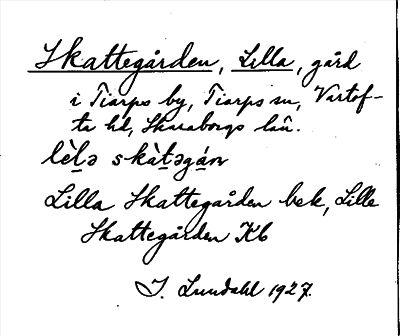 Skattegården, Lilla, gård
i Tiarps by, Tiarps sn, Vartof-
ta hd, Skaraborgs län.
lèl̠ə skàt̠əgán
Lilla Skattegården bek, Lille
Skattegården Kb
I. Lundahl 1927.